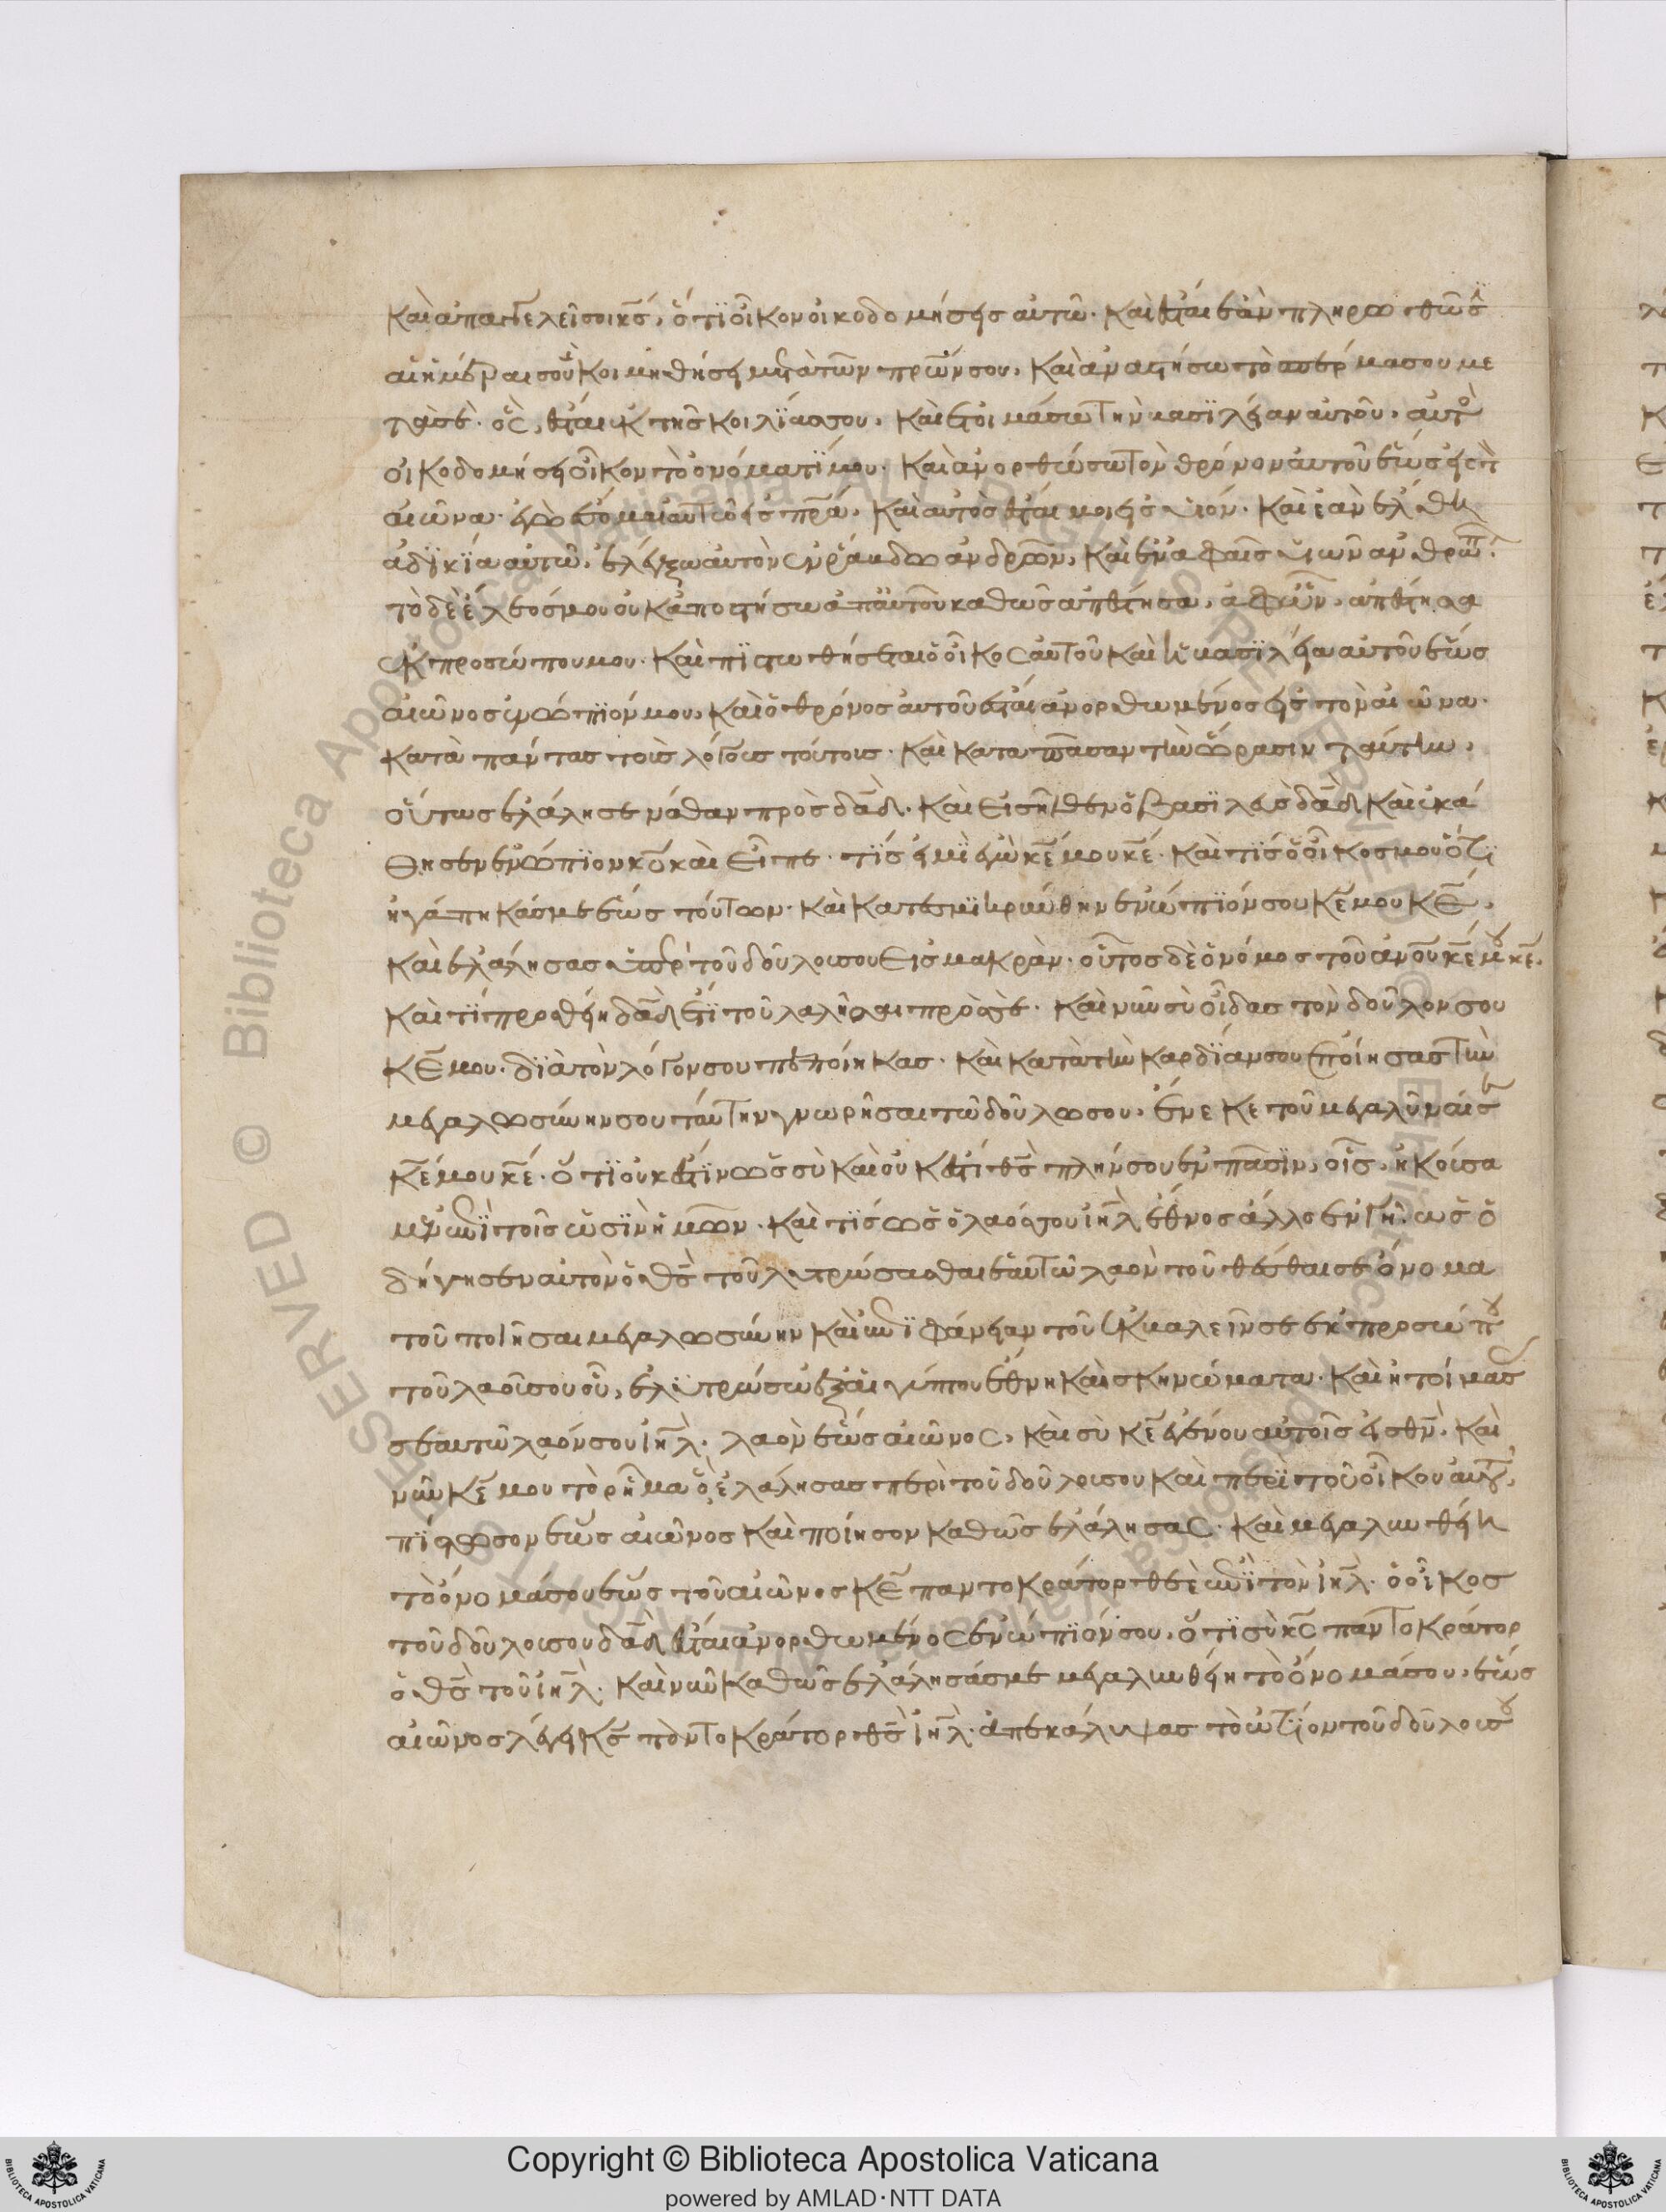 Καὶ ἀπαγγελεῖ σοι κς, ὅτι οἶκον οἰκοδομήσεις αὐτῶ· Καὶ ἔσται ἐὰν πληρωθῶσϊ
αἱ ἡμέραι σου Κοιμηθήση μετὰ τῶν πρων σου, Καὶ ἀναστήσω τὸ σπέρμα σου με
τὰ σὲ· ὃς, ἔσται ἐκ τῆς κοιλίας σου, Καὶ ἑτοιμάσω τὴν βασϊλείαν αὐτοῦ· αὐτὸς
οἰκοδομήσει οἶκον τὸ ὀνόματί μου· Καὶ ἀνορθώσω τὸν θρόνον αὐτοῦ ἕως εἰς τὸν
αἰῶνα· ἐγὼ ἔσομαι αὐτῶ εἰς πρα, Καὶ αὐτὸς ἔσται μοι εἰς υἱόν· Καὶ ἐὰν ἔλθη
ἀδϊκία αὐτῶ, ἐλέγξω αὐτὸν ἐν ῥάβδω ἀνδρῶν, Καὶ ἐν ἁφαῖς υἱῶν ἀνθρώπ.
τὸ δὲ ἔλεος μου οὐκ ἀποστήσω ἀπ' αὐτοῦ καθὼς ἀπέστησα, ἀφ' ὧν, ἀπέστησα
ἐκ προσώπου μου· Καὶ πϊστωθήσεται ὁ οἶκος αὐτοῦ καὶ ἡ βασϊλεία αὐτοῦ ἕως
αἰῶνος ἐνώπϊόν μου, Καὶ ὁ θρόνος αὐτοῦ ἔσται ἀνορθωμένος εἰς τὸν αἰῶνα·
Κατὰ πάντας τοὺς λόγους τούτοις· Καὶ κατα πᾶσαν τὴν ὅρασιν ταύτην,
οὕτως ἐλάλησε νάθαν πρὸς δαδ· Καὶ Εἰσῆλθεν ὁ βασϊλεὺς δαδ Καὶ ἐκά
θησεν ἐνώπϊον κυ καὶ Εἶπε· τϊς εἰμϊ ἐγὼ κε μου κε· Καὶ τϊς ὁ οἶκος μου ὅτϊ
ἠγάπηκάς με ἕως τούτων· Καὶ κατεσμϊκρύνθην ἐνώπϊόν σου Κε μου Κε,
Καὶ ἐλάλησας ὑπὲρ τοῦ δούλου σου Εἰς μακρὰν· οὗτος δὲ ὁ νόμος τοῦ ἀνου κε μου κε.
Καὶ τί προσθήη δαδ ἔτϊ τοῦ λαλῆσαι πρὸς σὲ· Καὶ νῦν σὺ οἶδας τὸν δοῦλον σου
Κε μου· δϊὰ τὸν λόγον σου πεποίηκας· Καὶ κατὰ τὴν καρδϊαν σου ἐποίησας τὴν
μεγαλωσύνην σου ταύτην γνωρῆσαι τῶ δούλω σου, ἕνεκε τοῦ μεγαλῦναί σε
Κε μου κε· ὅτϊ οὐκ ἔστϊν ὡς σὺ καὶ οὐκ ἔστι θς πλήν σου ἐν πᾶσϊν, οἷς, ἠκούσα
μεν ἐν τοῖς ὠσϊν ἡμῶν· Καὶ τϊς ὡς ὁ λαός σου ιηλ ἔθνος ἄλλο ἐν τῆ γῆ, ὡς ὁ
δήγησεν αὐτὸν ὁ θς τοῦ λυτρώσασθαι ἑαυτῶ λαὸν τοῦ θέσθαι σε ὄνομα
τοῦ ποιῆσαι μεγαλωσύνην Καὶ ἐπϊφάνειαν τοῦ ἐκβαλεῖν σε ἐκ προσώπου
τοῦ λαοῦ σου οὗ, ἐλυτρώσω ἐξ αἰγύπτου ἔθνη Καὶ σκηνώματα· Καὶ ἡτοίμασ
σεαυτῶ λαόν σου ιηλ, λαὸν ἕως αἰῶνος, Καὶ σὺ Κε ἐγένου αὐτοῖς εἰς θν, Καὶ
νῦν Κε μου τὸ ρῆμα ὃ ἐλάλησας περὶ τοῦ δούλου σου Καὶ περὶ τοῦ οἴκου αὐτοῦ,
πίστωσον ἕως αἰῶνος Καὶ ποίησον καθὼς ἐλάλησας· Καὶ μεγαλυνθείη
τὸ ὄνομά σου ἕως τοῦ αἰῶνος Κε παντοκράτορ θς ἐπϊ τὸν ιηλ· ὁ οἶκος
τοῦ δούλου σου δαδ ἔσται ἀνορθωμένος ἐνώπϊόν σου, ὅτϊ σὺ κς παντοκράτορ
ὁ θς τοῦ ιηλ· Καὶ νῦν Καθὼς ἐλάλησάς με μεγαλυνθείη τὸ ὄνομά σου, ἕως
αἰῶνος λέγει Κς παντοκράτορ θς ιηλ· ἀπεκάλυψας τὸ ὠτϊον τοῦ δούλου σου
Copyright © Biblioteca Apostolica Vaticana
powered by AMLAD·NTT DATA